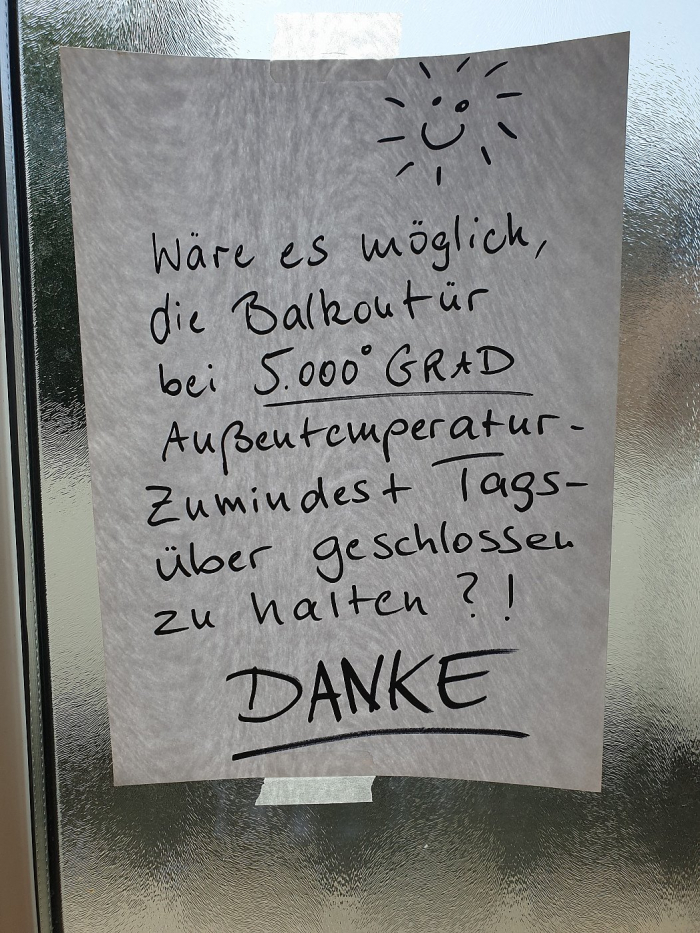 Wäre es möglich,
die Balkontür
bei 5.000° GRAD
Außentemperatur-
Zumindest Tags-
über geschlossen
zu halten ?!
DANKE